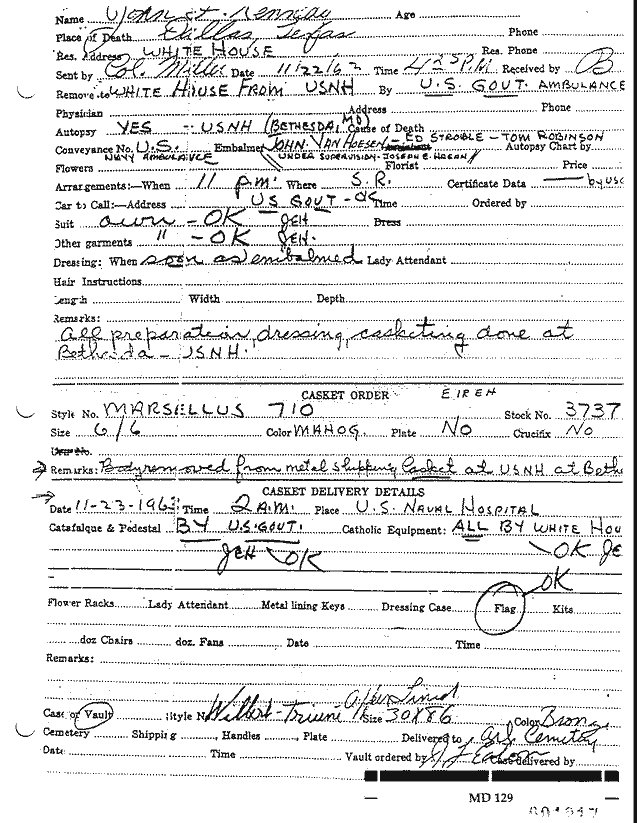 Name John F. Kennedy Age
Place of Death Dallas, Texas Phone
Res. Address WHITE HOUSE Res. Phone
Sent by Col. Miller Date 11/22/63 Time 4:25 P.M. Received by B
Remove to WHITE HOUSE FROM USNH By U.S. GOVT. AMBULANCE
Physician Address Phone
Autopsy YES - USNH (BETHESDA, MD) Cause of Death
Conveyance No. U.S. Embalmer JOHN VAN HOESEN - ED STROBLE - TOM ROBINSON Autopsy Chart by
NAVY AMBULANCE UNDER SUPERVISION - JOSEPH E. HAGAN
Flowers Florist Price
Arrangements:—When 11 P.M. Where S.R. Certificate Data by USG
Car to Call:—Address US GOVT - OK Time Ordered by
Suit own - OK JEH Dress
Other garments " - OK JEH.
Dressing: When soon as embalmed Lady Attendant
Hair Instructions
Length Width Depth
Remarks:
All preparation, dressing, casketing done at
Bethesda - USNH.
CASKET ORDER
Style No. MARSELLUS 710 Stock No. 3737
Size 6/6 Color MAHOG. Plate No Crucifix No
Remarks: Body removed from metal shipping casket at USNH at Beth
CASKET DELIVERY DETAILS
Date 11-23-1963 Time 2 A.M. Place U.S. NAVAL HOSPITAL
Catafalque & Pedestal BY U.S. GOVT. Catholic Equipment: ALL BY WHITE HOU
JEH - OK - OK JE
OK
Flower Racks Lady Attendant Metal lining Keys Dressing Case Flag Kits
doz Chairs doz. Fans Date Time
Remarks:
Case or Vault Style No. Wilbert-Triune Size 30X86 Color Bronze
Cemetery Shipping Handles Plate Delivered to Arl. Cemetery
Date Time Vault ordered by Case delivered by
MD 129